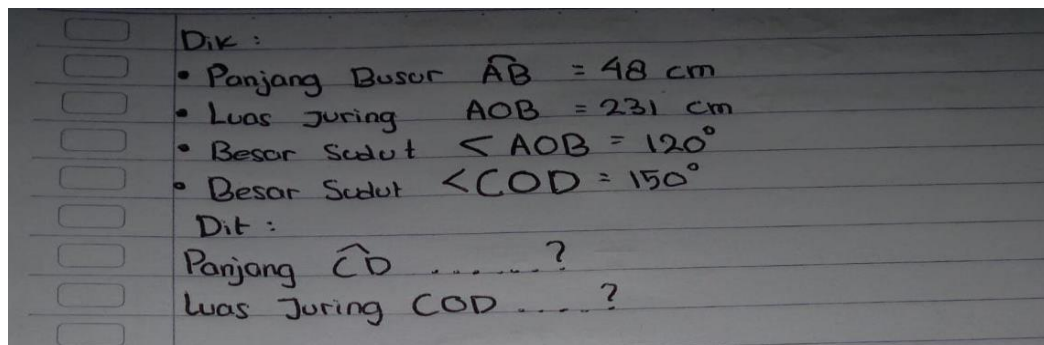 Dik :
• Panjang Busur AB = 48 cm
• Luas Juring AOB = 231 cm
• Besar Sudut < AOB = 120°
• Besar Sudut < COD = 150°
Dit :
Panjang CD ......?
Luas Juring COD ....?